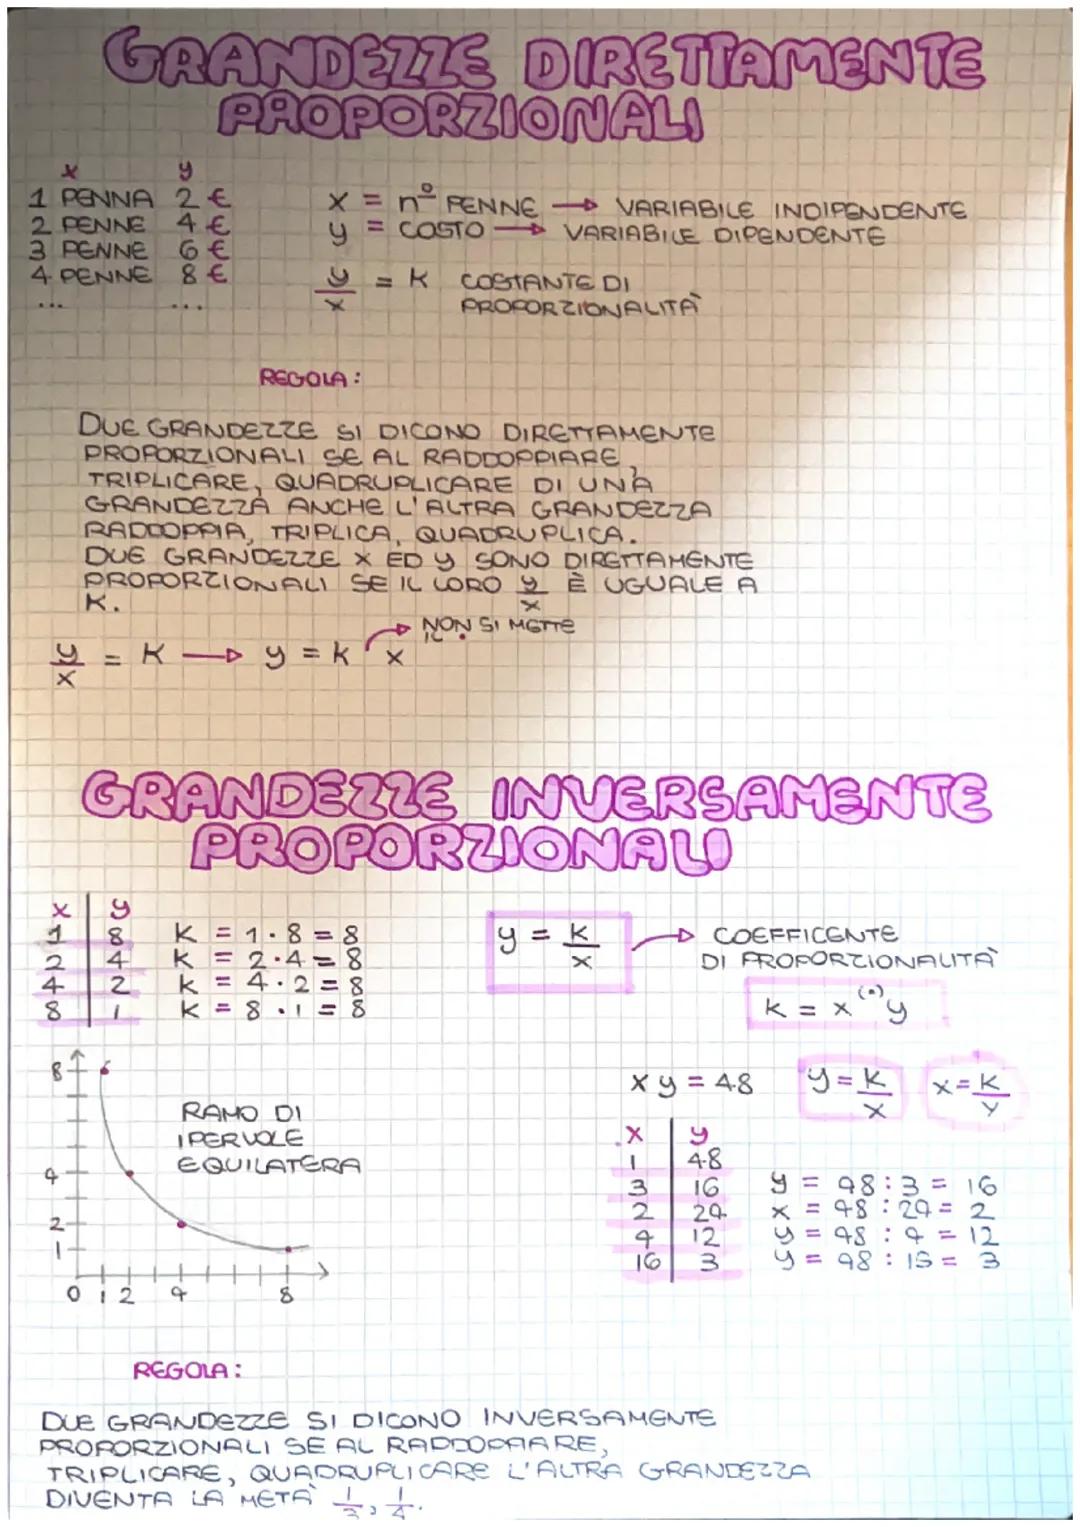 GRANDEZZE DIRETTAMENTE
PROPORZIONALI
x y
1 PENNA 2 €
2 PENNE 4 €
3 PENNE 6 €
4 PENNE 8 €
... ...
x = n° PENNE → VARIABILE INDIPENDENTE
y = COSTO → VARIABILE DIPENDENTE
y/x = K COSTANTE DI
PROPORZIONALITÀ
REGOLA:
DUE GRANDEZZE SI DICONO DIRETTAMENTE
PROPORZIONALI SE AL RADDOPPIARE,
TRIPLICARE, QUADRUPLICARE DI UNA
GRANDEZZA ANCHE L'ALTRA GRANDEZZA
RADDOPPIA, TRIPLICA, QUADRUPLICA.
DUE GRANDEZZE X ED y SONO DIRETTAMENTE
PROPORZIONALI SE IL LORO y/x È UGUALE A
K.
NON SI METTE
IL •
y/x = K → y = k x
GRANDEZZE INVERSAMENTE
PROPORZIONALI
x y
1 8
2 4
4 2
8 1
K = 1 · 8 = 8
K = 2 · 4 = 8
K = 4 · 2 = 8
K = 8 · 1 = 8
y = K/x → COEFFICENTE
DI PROPORZIONALITÀ
K = x (·) y
8
4
2
1
0 1 2 4 8
RAMO DI
IPERVOLE
EQUILATERA
x y = 48 y = K/x x = K/y
x y
1 48
3 16
2 24
4 12
16 3
y = 48 : 3 = 16
x = 48 : 24 = 2
y = 48 : 4 = 12
y = 48 : 15 = 3
REGOLA:
DUE GRANDEZZE SI DICONO INVERSAMENTE
PROPORZIONALI SE AL RADDOPPIARE,
TRIPLICARE, QUADRUPLICARE L'ALTRA GRANDEZZA
DIVENTA LA METÀ 1/3, 1/4.